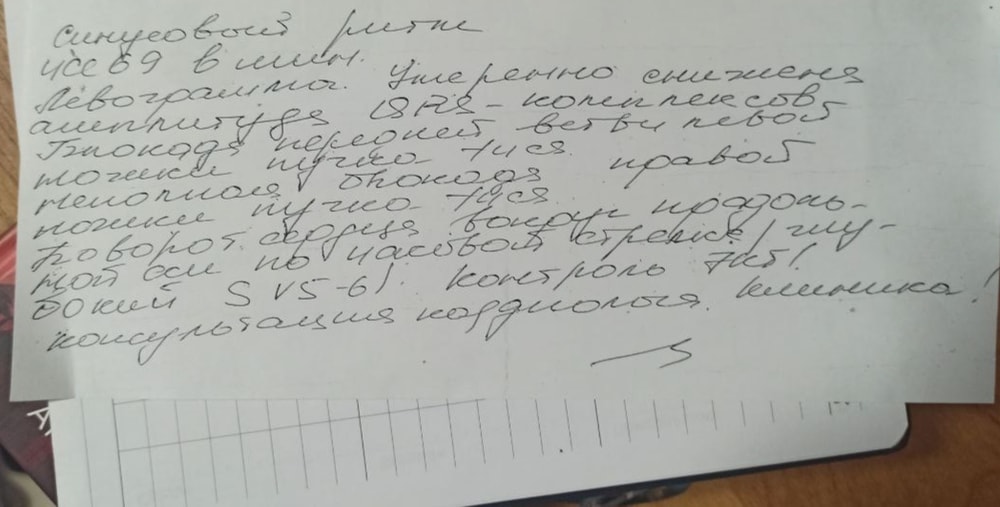 Синусовый ритм
ЧСС 69 в мин.
Левограмма. Умеренно снижена
амплитуда QRS-комплексов
Блокада передней ветви левой
ножки пучка Гиса
неполная блокада правой
ножки пучка Гиса
Поворот сердца вокруг продоль-
ной оси по часовой стрелке/глу-
бокий S V5-6/. Контроль ЭКГ!
консультация кардиолога. Клиника!